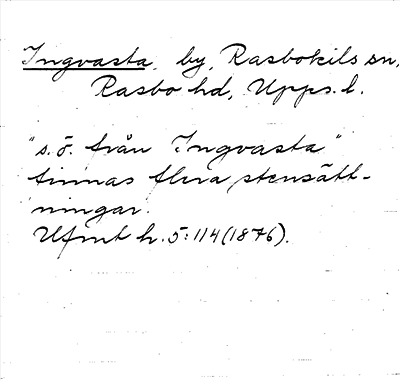 Ingvasta, by, Rasbokils sn,
Rasbo hd, Upps. l.
"s.ö. från Ingvasta"
finnas flera stensätt-
ningar.
Ufmt h. 5:114 (1876).